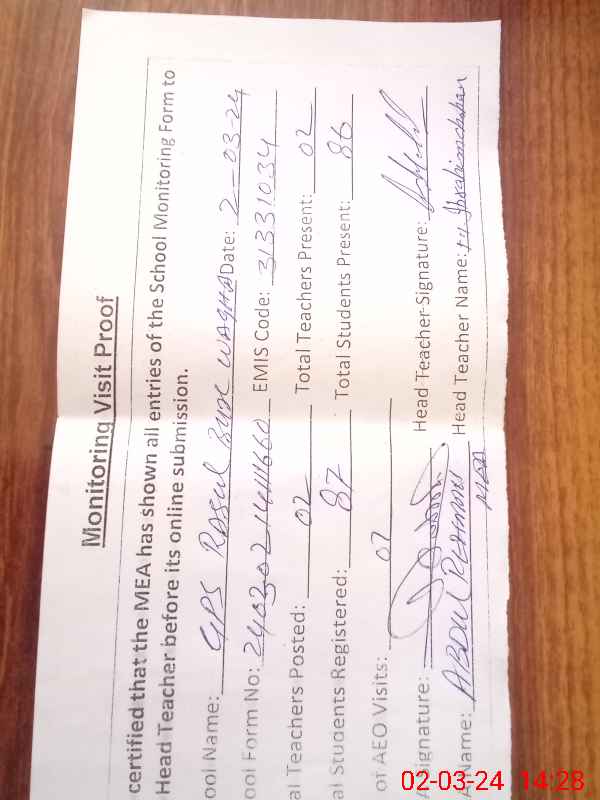 Monitoring Visit Proof
certified that the MEA has shown all entries of the School Monitoring Form to
Head Teacher before its online submission.
ool Name: GPS RASUL BUX WAGHA Date: 2-03-24
ool Form No: EMIS Code: 31331034
al Teachers Posted: 02 Total Teachers Present: 02
al Students Registered: 87 Total Students Present: 86
of AEO Visits: 07
Signature: Head Teacher Signature:
A Name: ABDUL REHMAN MEA Head Teacher Name:
02-03-24 14:28